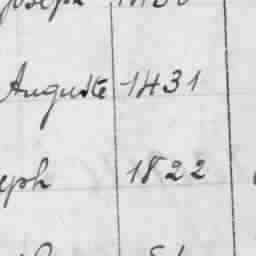 Joseph
Auguste 1431
eph 1822